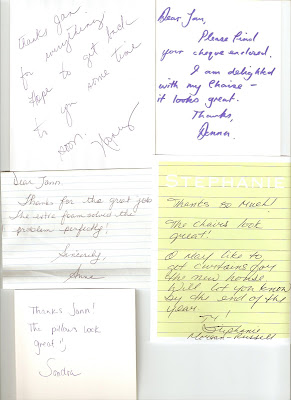 Thanks Jan
for everything
Hope to get back
to you some time
soon.
Dear Jann,
Please find
your cheque enclosed.
I am delighted
with my Chaise -
it looks great.
Thanks,
Donna.
Dear Jann
Thanks for the great job.
The extra foam solved the
problem perfectly!
Sincerely,
Anne
STEPHANIE
Thanks so much!
The chairs look
great!
I may like to
get curtains for
the new house
Will let you know
by the end of the
year.
TY!
Stephanie
Morgan-Russell
Thanks Jann!
The pillows look
great!
Sondra